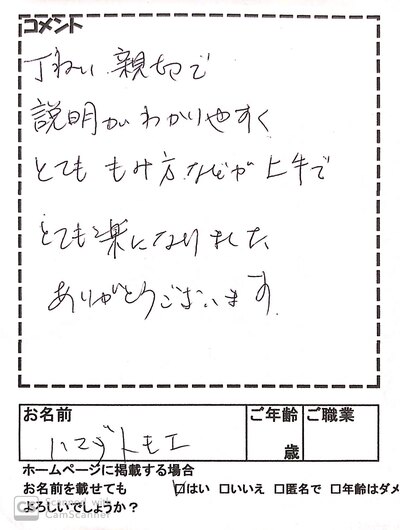 コメント
丁ねい 親切で
説明がわかりやすく
とても もみ方などが上手で
とても楽になりました
ありがとうございます
お名前 ご年齢 ご職業
ハマダトモエ 歳
ホームページに掲載する場合
お名前を載せても ☑はい □いいえ □匿名で □年齢はダメ
よろしいでしょうか？
CS Scanned with
CamScanner